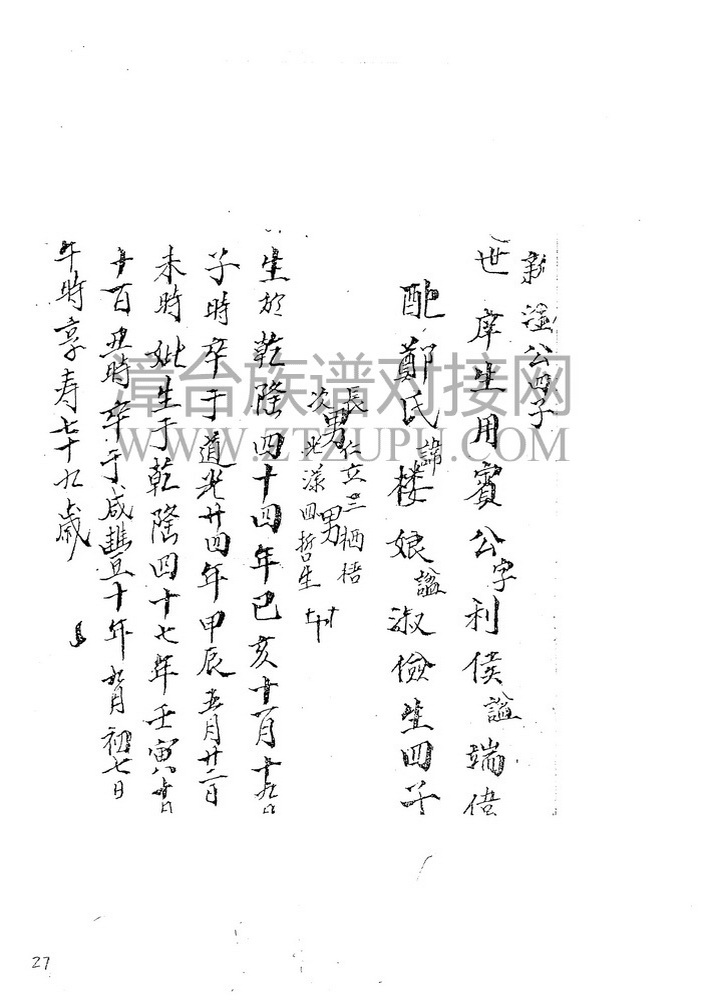 新 公四子
世 庠生用賓公字利侯謚端偉
配鄭氏諱樓娘謚淑儉生四子
長男仁立 三男栖梧
次男光漾 四哲生
生於乾隆四十四年己亥十一月十九日
子時卒于道光廿四年甲辰五月廿二日
未時妣生于乾隆四十七年壬寅八
丑時卒于咸豐十年九月初七日
午時享寿七十九歲
漳台族谱对接网
WWW.ZTZUPU.COM
27